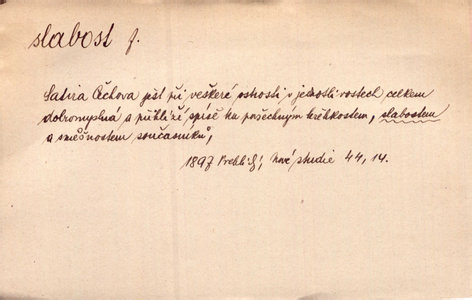 slabost f.
Satira Čechova jest při veškeré ostrosti v jednotlivostech celkem
dobromyslná a přihlíží spíše ku obecným křehkostem, slabostem
a směšnostem současníků,
1897 Nové studie 44, 14.